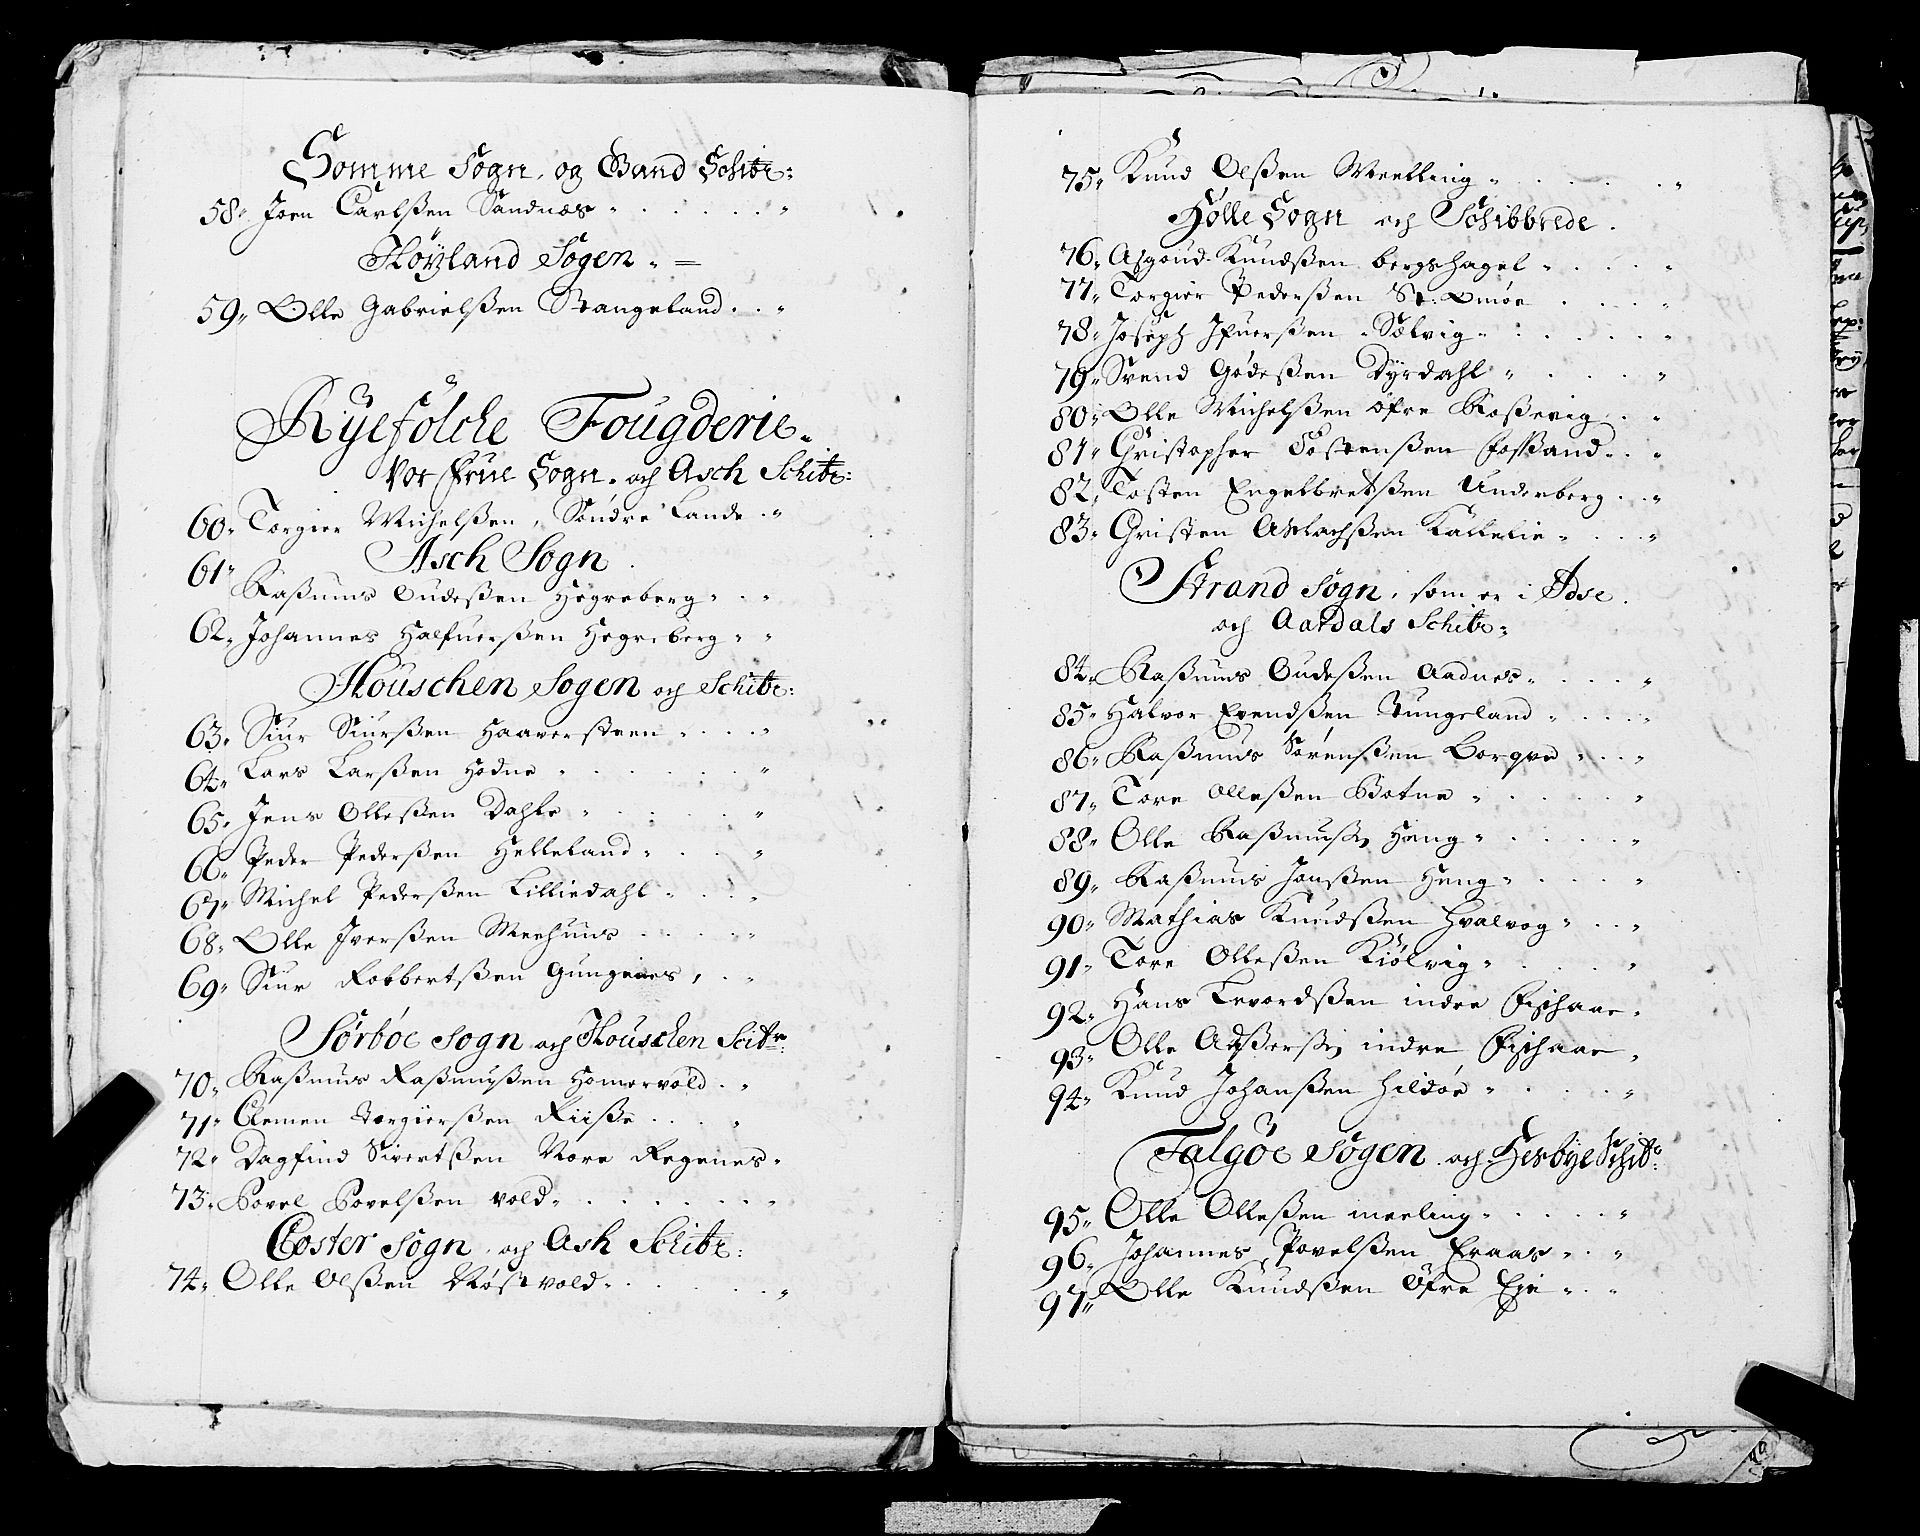 Somme Sogn, og Band Schibr:
58. Joen Carlßen Sandnæs
Höyland Sogen
59. Olle Gabrielßen Stangeland
Ryefölche Fougderie
Vor Frue Sogn, och Asch Schibr:
60. Torgier Michelßen, Søndre Lande
Asch Sogn
61.
Raßmus Gudeßen Hegreberg
62. Johannes Halfuerßen Hegreberg
Houschen Sogen och Schibr:
63. Siur Siurßen Haaversteen
64. Lars Larßen Hodne
65. Jens Olleßen Dahle
66. Peder Pederßen Helleland
67. Michel Pederßen Lilliedahl
68. Olle Iverßen Meehuus
69. Siur Robbertßen Gungenes
Sørbøe Sogn och Houschen Scibr:
70. Raßmus Raßmußen Homervold
71. Clemen Torgierßen Riiße
72. Dagfind Sivertßen Nore Regenes
73. Povel Povelßen Vold
Closter Sogn, och Ash Schibr:
74. Olle Olßen Røstvold
75. Knud Olßen Meelling
Hølle Sogn och Schibbrede.
76. Asgoud Knudßen bergshagel
77. Torgier Pederßen St. Omøe
78. Joseph Ifuerßen Sælvig
79. Svend Gødeßen Dyrdahl
80. Olle Michelßen öfre Roßevig
81. Christopher Tostenßen Foßsand
82. Tosten Engelbretßen Underberg
83. Christen Aßlachßen Kallelie
Strand Sogn, som er i Idse
och Aardals Schibr:
84. Raßmus Gudeßen Aadnes
85. Halvor Evendßen Tungeland
86. Raßmus Sørenßen Borgve
87. Tore Olleßen Botne
88. Olle Raßmusßen Heng
89. Raßmus Jonßen Heng
90. Mathias Knudßen Hvalvog
91. Tore Olleßen Kiölvig
92. Hans Levordßen indre Fischaae
93. Olle Aßerßen indre Fischaae
94. Knud Johanßen Hildøe
Falgöe Sogen och Hesbye Schibr:
95. Olle Olleßen meeling
96. Johannes Povelßen Eraas
97. Olle Knudßen Öfre Eie